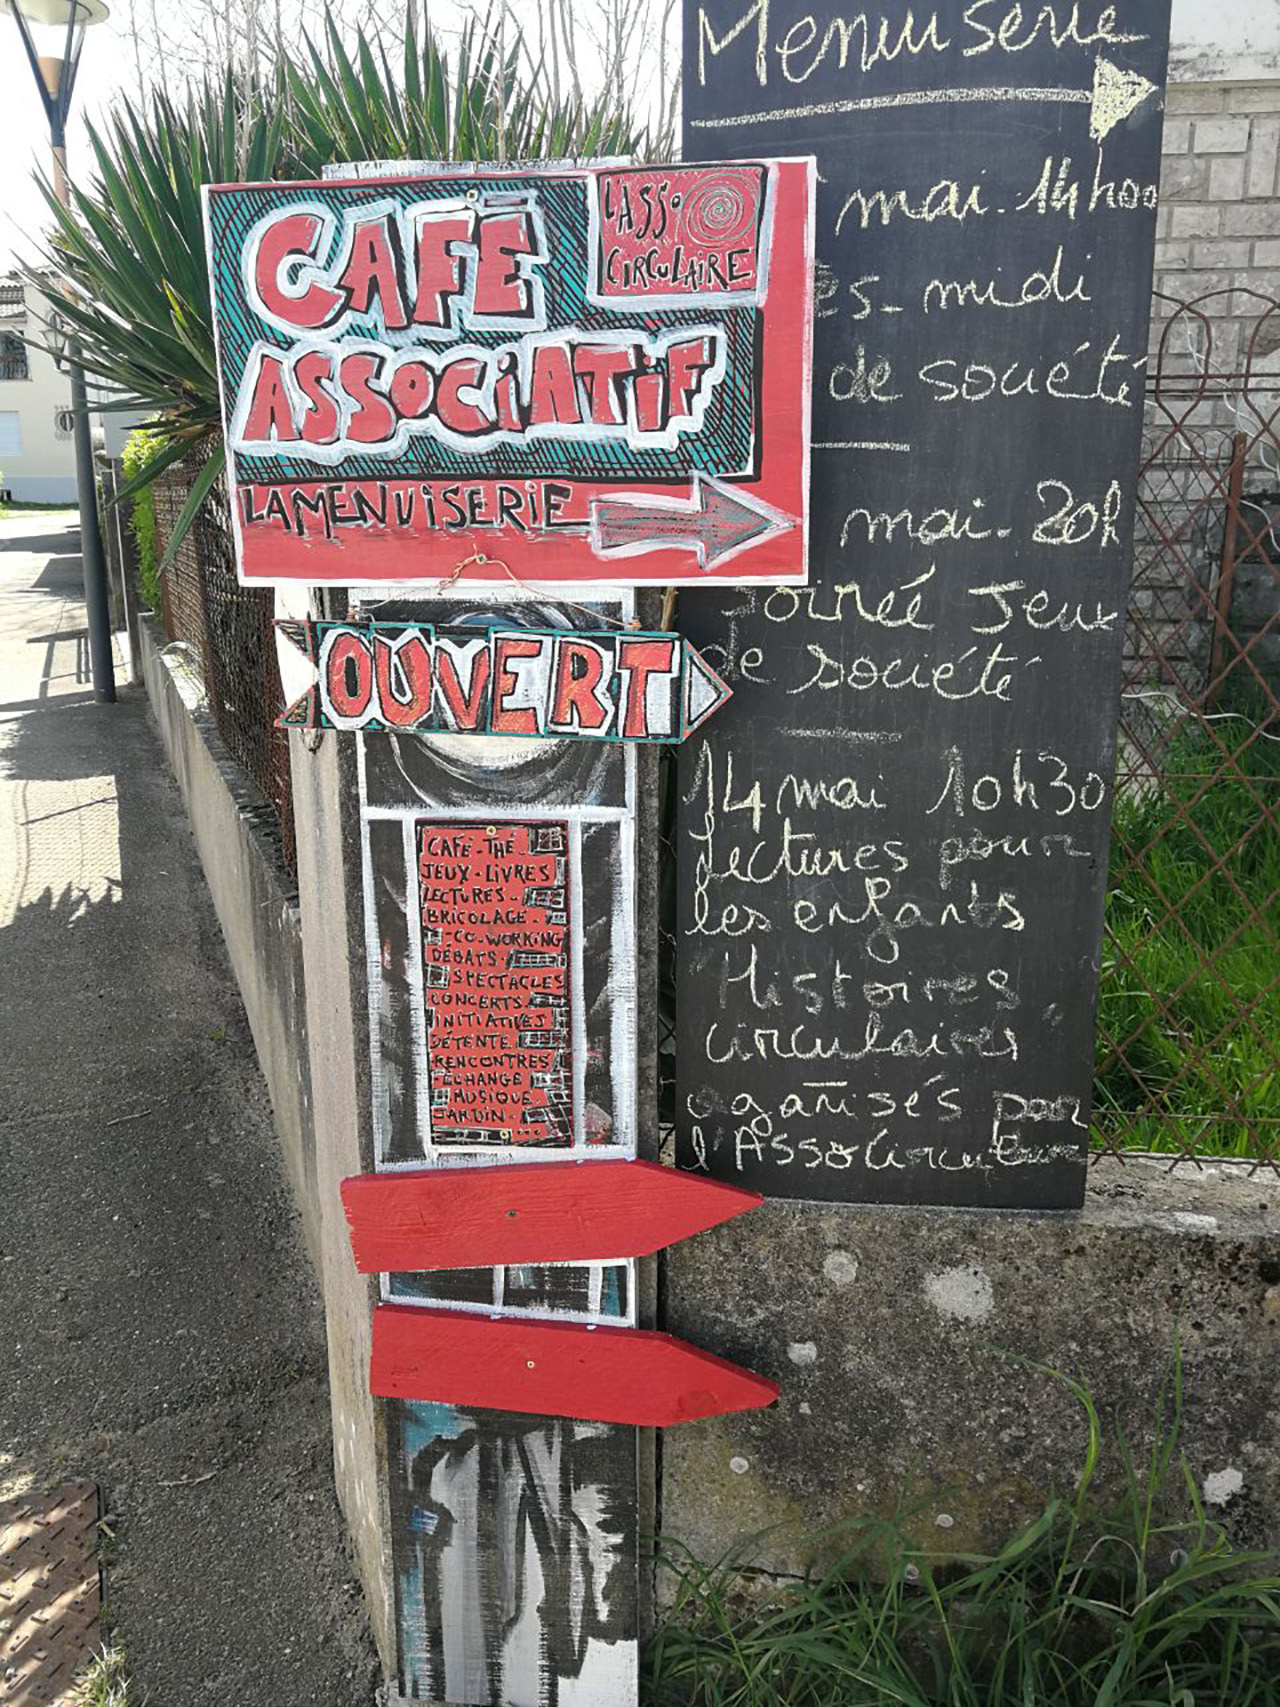 CAFÉ
ASSOCIATIF
L'ASSO
CIRCULAIRE
LA MENUISERIE
OUVERT
CAFÉ-THÉ
JEUX-LIVRES
LECTURES-
BRICOLAGE-
-CO-WORKING
DÉBATS-
SPECTACLES
CONCERTS
INITIATIVES
DÉTENTE
RENCONTRES
-ÉCHANGE
MUSIQUE-
JARDIN-
...
Menuiserie
mai. 14h00
es-midi
de société
mai. 20h
soirée Jeux
de société
14 mai 10h30
Lectures pour
les enfants
"Histoires
circulaires"
organisés par